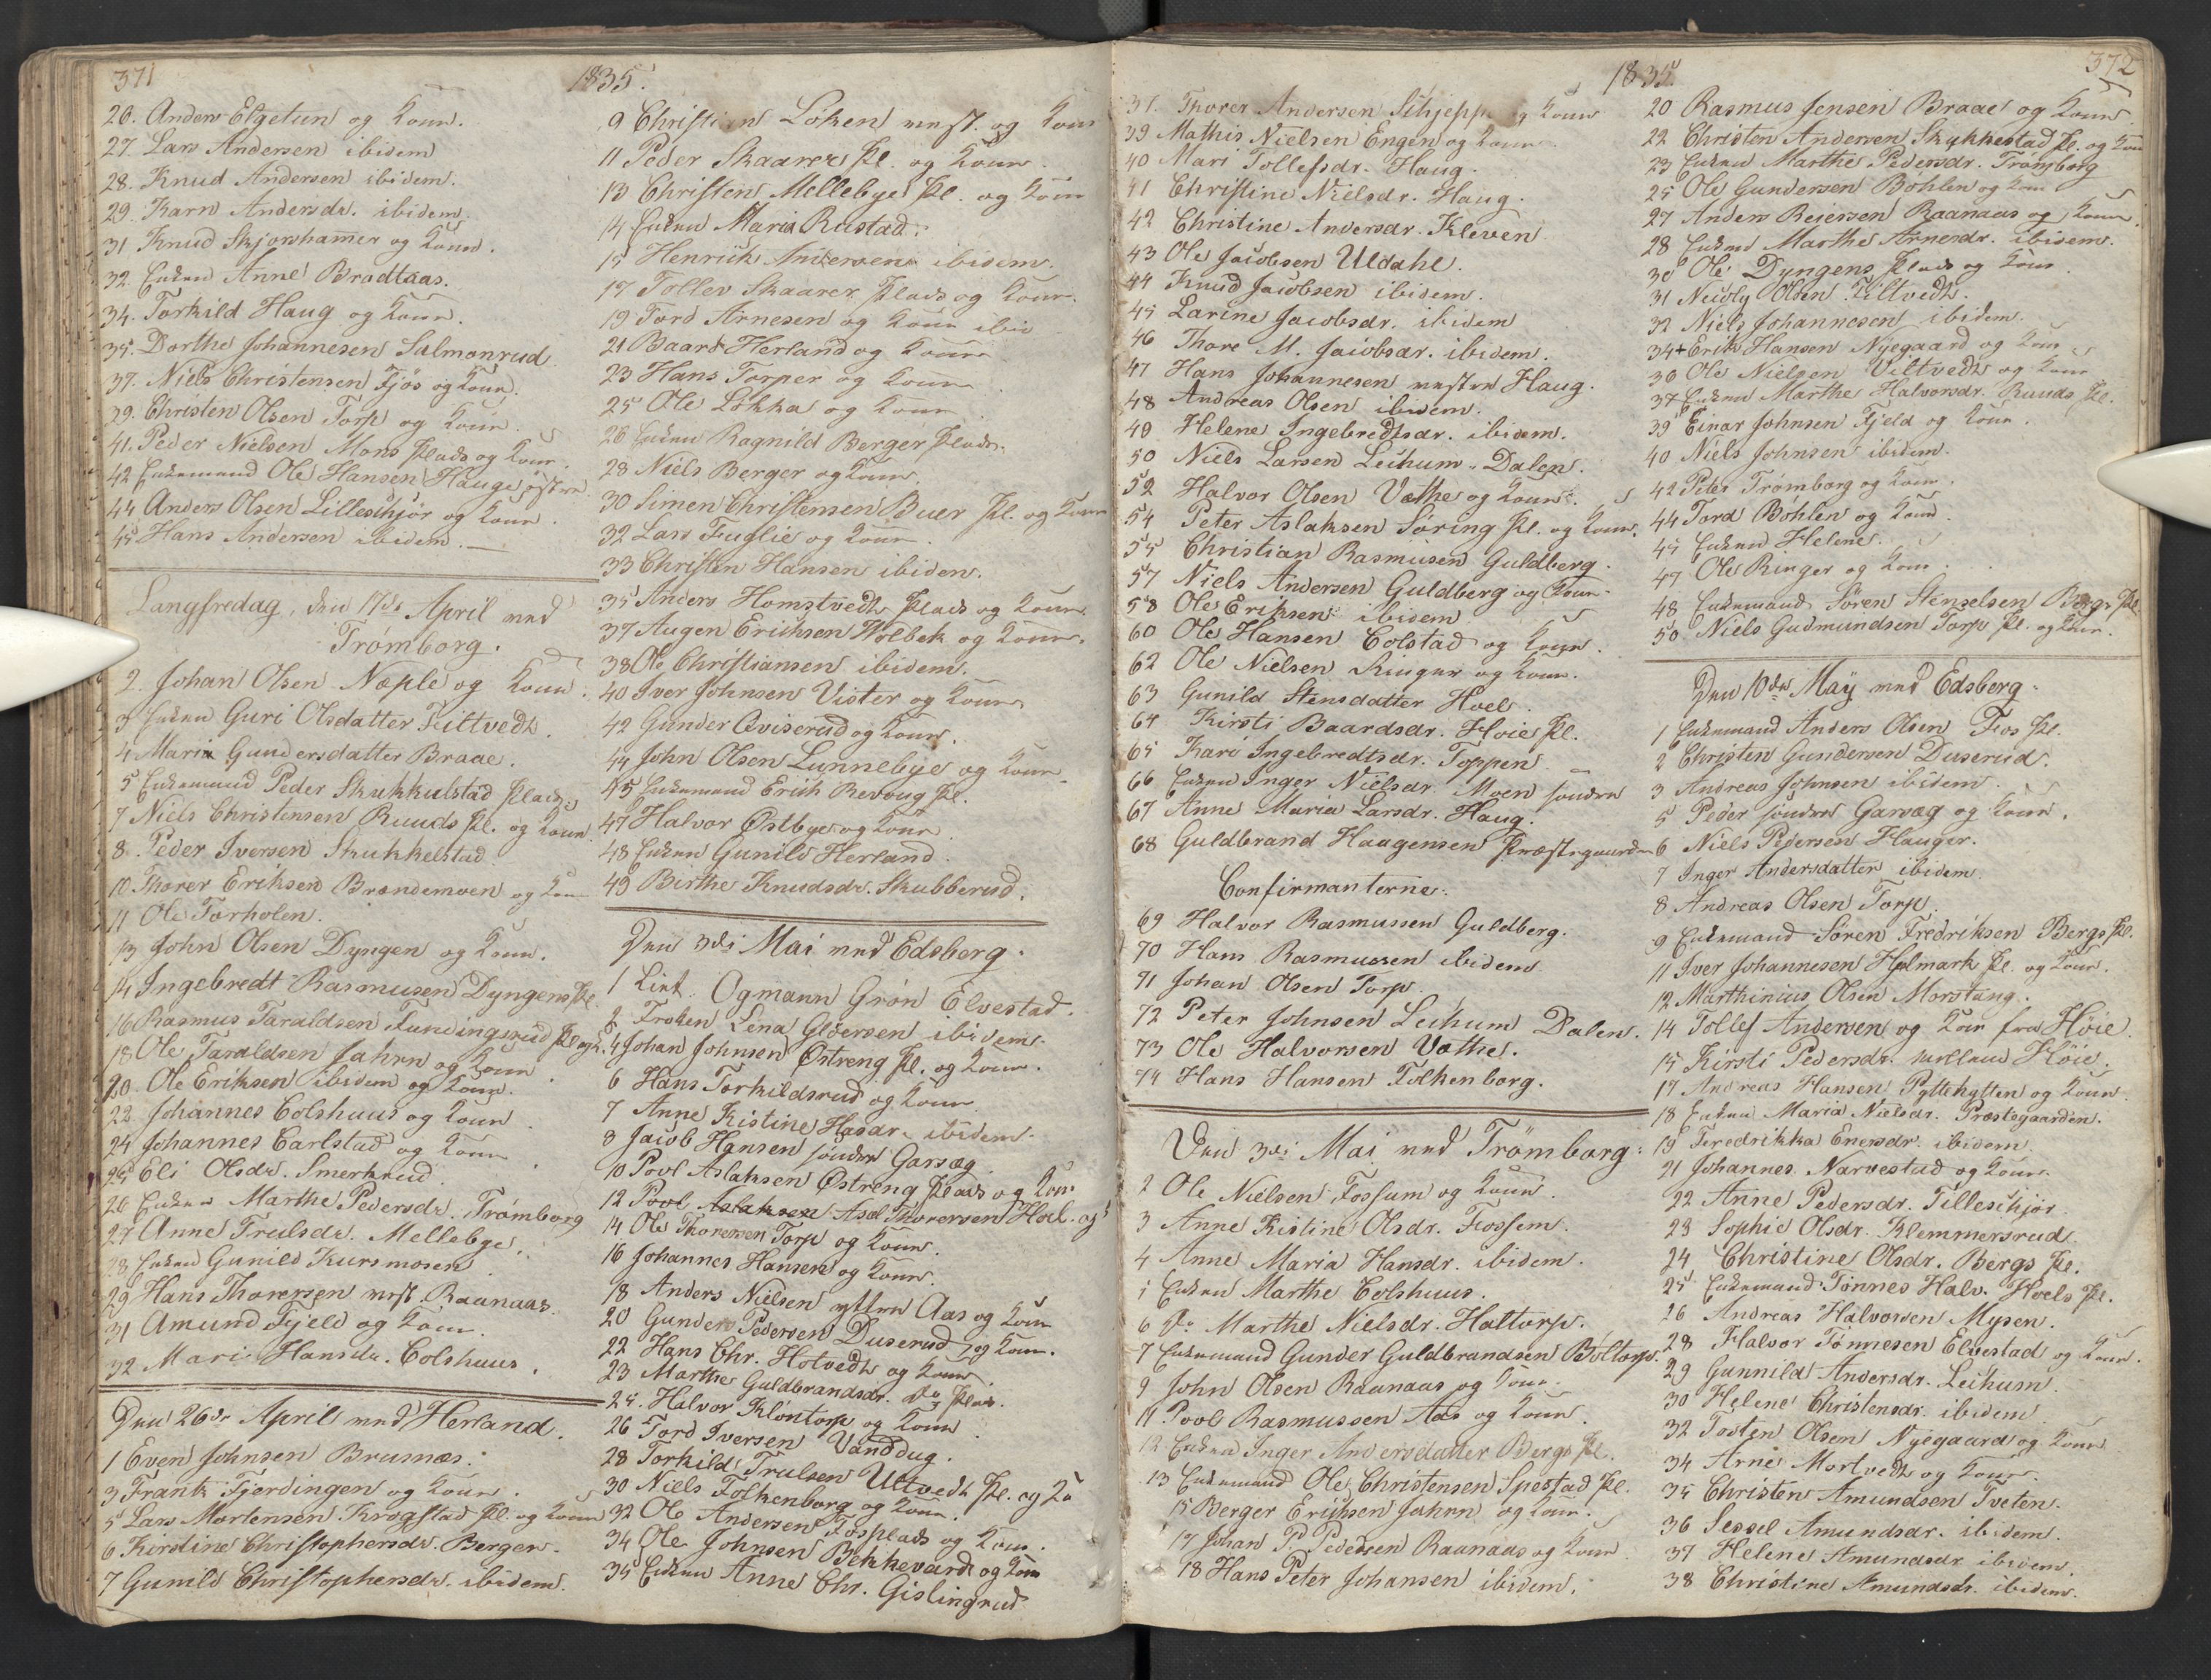 371
1835.
26. Anders Elgetun og Kone.
27. Lars Andersen ibidem
28. Knud Andersen ibidem.
29. Karn Andersdr. ibidem.
31 Knud Skjørshammer og Kone.
32. Enken Anne Bradtaas.
34. Torkild Haug og Kone.
35. Dorthe Johannesen Salmonrud
37. Niels Christensen Fjøs og Kone.
39. Christen Olsen Torp og Kone.
41. Peder Nielsen Mons Plads og Kone.
42 Enkemand Ole Hansen Hauge østre.
44 Anders Olsen Lilleschjør og Kone.
45 Hans Andersen ibidem.
Langfredag, den 17de April ved
Trømborg.
2. Johan Olsen Næple og Kone.
3 Enken Guri Olsdatter Kiltvedt.
4 Maria Gundersdatter Braae.
5 Enkemand Peder Skukkulstad Plads.
7 Niels Christensen Ruuds Pl. og Kone.
8. Peder Iversen Skukkelstad
10 Thorer Eriksen Brændemoen og Kone
11 Ole Torholen.
13 John Olsen Dyngen og Kone.
14 Ingebredt Rasmusen Dyngens Pl.
16 Rasmus Taraldsen Funingsrud Pl og K.
18 Ole Taraldsen Jahrn og Kone.
20. Ole Eriksen ibidem og Kone.
22 Johannes Colshuus og Kone
24 Johannes Carlstad og Kone
25 Eli Olsdr. Smerkrud.
26 Enken Marthe Pedersdr. Trømborg
27 Anne Trulsdr. Mellebye.
28 Enken Gunild Kursmosen
29 Hans Thoresen vest. Raanaas.
31 Amund Fjeld og Kone.
32 Mari Hansdr. Colshuus.
Den 26de April ved Herland.
1 Even Johnsen Brusnæs.
3 Frank Fjerdingen og Kone.
5 Lars Mortensen Krogstad Pl. og Kone
6 Kirstine Christophersdr. Berger.
7 Gunild Christophersdr. ibidem.
9 Christian Løken vest. og Kone
11 Peder Skaarer Pl. og Kone.
13 Christen Mellebye Pl. og Kone
14 Enken Maria Rustad.
15 Henrich Andersen ibidem.
17 Tollev Skaarer Plads og Kone.
19 Tord Arnesen og Kone ibid
21 Baard Herland og Kone
23 Hans Torper og Kone
25 Ole Løkka og Kone.
26 Enken Ragnild Berger Plads.
28 Niels Berger og Kone.
30 Simen Christensen Buer Pl. og Kone
32 Lars Fuglie og Kone.
33 Christen Hansen ibidem.
35 Anders Homstvedt Plads og Kone.
37 Augen Erichsen Holbek og Kone.
38 Ole Christiansen ibidem.
40 Iver Johnsen Vister og Kone
42 Gunder Qviserud og Kone.
44 John Olsen Lunnebye og Kone.
45 Enkemand Erich Revoug Pl.
47 Halvor Østbye og Kone.
48 Enken Gunild Herland.
49 Birthe Knudsdr. Skubberud.
Den 3die Mai ved Edsberg.
1 Liet. Ogmann Grøn Elvestad.
2 Frøken Lena Gløersen ibidem.
4 Johan Johnsen Østreng Pl. og Kone.
6 Hans Torkildsrud og Kone.
7 Anne Kistine Hasdr. ibidem.
8 Jacob Hansen søndre Garsæg.
10 Povl Aslaksen Østreng Plads og Kone
12 Povl Aslaksen Asol Thorersen Hoel. og
14 Ole Thorersen Torp og Kone.
16 Johannes Hansen og Kone.
18 Anders Nielsen yttre Aas og Kone
20 Gunder Pedersen Duserud og Kone.
22 Hans Chr. Hotvedt og Kone.
23 Marthe Guldbrandsdr. do Plads.
25. Halvor Kløntorp og Kone.
26 Tord Iversen Vanddug.
28 Torkild Trulsen Ultvedt Pl. og Ko
30 Niels Folkenborg og Kone.
32 Ole Andersen Fosplads og Kone.
34 Ole Johnsen Bekkevard og Kone
35 Enken Anne Chr. Gislingrud
1835.
372
37. Thorer Andersen Schjeppe og Kone
39 Mathis Nielsen Engen og Kone.
40 Mari Tollefsdr. Haug.
41 Christine Nielsdr. Haug.
42 Christine Andersdr. Kleven
43 Ole Jacobsen Uldahl.
44 Knud Jacobsen ibidem.
45 Larine Jacobsdr. ibidem
46 Thore M. Jacobsdr. ibidem.
47 Hans Johannesen vestre Haug.
48 Andreas Olsen ibidem.
49 Helene Ingebredtsdr. ibidem.
50 Niels Larsen Leikum-Dalen.
52 Halvor Olsen Vathe og Kone.
54 Peter Aslaksen Søring Pl. og Kone.
55 Christian Rasmusen Guldberg.
57 Niels Andersen Guldberg og Kone.
58 Ole Eriksen ibidem
60 Ole Hansen Colstad og Kone.
62 Ole Nielsen Ringer og Kone.
63 Gunild Stensdatter Hoel.
64 Kirsti Baardsdr. Hoie Pl.
65 Kari Ingebredtsdr. Toppen
66 Enken Inger Nielsdr. Moen søndre
67 Anne Maria Larsdr. Haug.
68 Guldbrand Haagensen Præstegaarden
Confirmanterne.
69 Halvor Rasmussen Guldberg.
70 Hans Rasmussen ibidem
71 Johan Olsen Torp.
72 Peter Johnsen Leikum Dalen.
73 Ole Halvorsen Vathe.
74 Hans Hansen Folkenborg.
Den 3die Mai ved Trømborg:
2 Ole Nielsen Fossum og Kone.
3 Anne Kistine Olsdr. Fossem.
4 Anne Maria Hansdr. ibidem.
5 Enken Marthe Colshuus.
6 do Marthe Nielsdr. Haltorp.
7 Enkemand Gunder Guldbrandsen Bøltorp.
9 John Olsen Raanaas og Kone.
11 Povl Rasmussen Aas og Kone.
12 Enken Inger Andersdatter Bergs Pl.
13 Enkemand Ole Christensen Spestad Pl.
15 Berger Erichsen Jahrn og Kone.
17 Johan P. Pedersen Raanaas og Kone
18 Hans Peter Johansen ibidem.
20 Rasmus Jensen Braae og Kone
22 Christen Andersen Skukkestad Pl. og Kone
23 Enken Marthe Pedersdr. Trømborg
25 Ole Gundersen Bøhlen og Kone
27 Anders Reiersen Raanaas og Kone.
28 Enken Marthe Arnesdr. ibidem.
30 Ole Dyngens Plads og Kone.
31 Nicoly Olsen Kiltvedt.
32 Niels Johannesen ibidem.
34+ Erik Hansen Nyegaard og Kone
36 Ole Nielsen Viltvedt og Kone
37 Enken Marthe Halvorsdr. Ruuds Pl.
39 Einar Johnsen Fjeld og Kone.
40 Niels Johnsen ibidem.
42 Peter Trømborg og Kone.
44 Tord Bøhlen og Kone.
45 Enken Helene.
47 Ole Ringer og Kone.
48 Enkemand Søren Stenselsen Bergs Pl.
50 Niels Gudmundsen Torp Pl. og Kone.
Den 10de Maÿ ved Edsberg.
1 Enkemand Anders Olsen Fos Pl.
2 Christen Gundersen Duserud.
3 Andreas Johnsen ibidem
5 Peder søndre Garsæg og Kone.
6 Niels Pedersen Hauger.
7 Inger Andersdatter ibidem.
8 Andreas Olsen Torp.
9 Enkemand Søren Fredriksen Bergs Pl.
11 Iver Johannesen Holmark Pl. og Kone.
12 Marthinius Olsen Morstang.
14 Tollef Andersen og Kone fra Høie
15 Kirsti Pedersdr. mellem Høie.
17 Andreas Hansen Pyttehytten og Kone
18 Enken Maria Nielsdr. Præstegaarden.
19 Feredrikka Enersdr. ibidem.
21 Johannes Narvestad og Kone.
22 Anne Pedersdr. Tilleschjør
23 Sophie Olsdr. Klemmersrud.
24 Christine Olsdr. Bergs Pl.
25 Enkemand Tønnes Halv. Hoels Pl.
26 Andreas Halvorsen Mysen.
28 Halvor Tønnesen Elvestad og Kone.
29 Gunnild Andersdr. Leikum.
30 Helene Christensdr. ibidem
32 Tosten Olsen Nyegaard og Kone
34 Arne Mortvedt og Kone.
35 Christen Amundsen Tveten.
36 Sessel Amundsdr. ibidem.
37 Helene Amundsdr. ibidem.
38 Christine Amundsdr. ibidem.